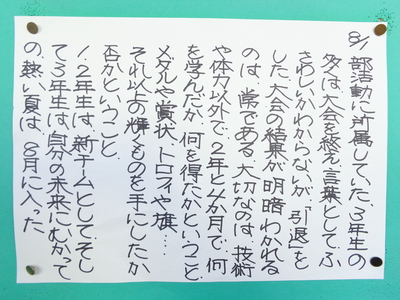 8/1 部活動に所属していた、3年生の
多くは、大会を終え、言葉として、ふ
さわしいかわからないが、「引退」を
した。大会の結果が明暗わかれる
のは、常である。大切なのは、技術
や体力以外で、2年と4か月で、何
を学んだか、何を得たかということ
メダルや賞状、トロフィや旗…。
それ以上の輝くものを手にしたか
否かということ。
1、2年生は、新チームとして、そし
て3年生は、自分の未来にむかって
の、熱い夏は、8月に入った。